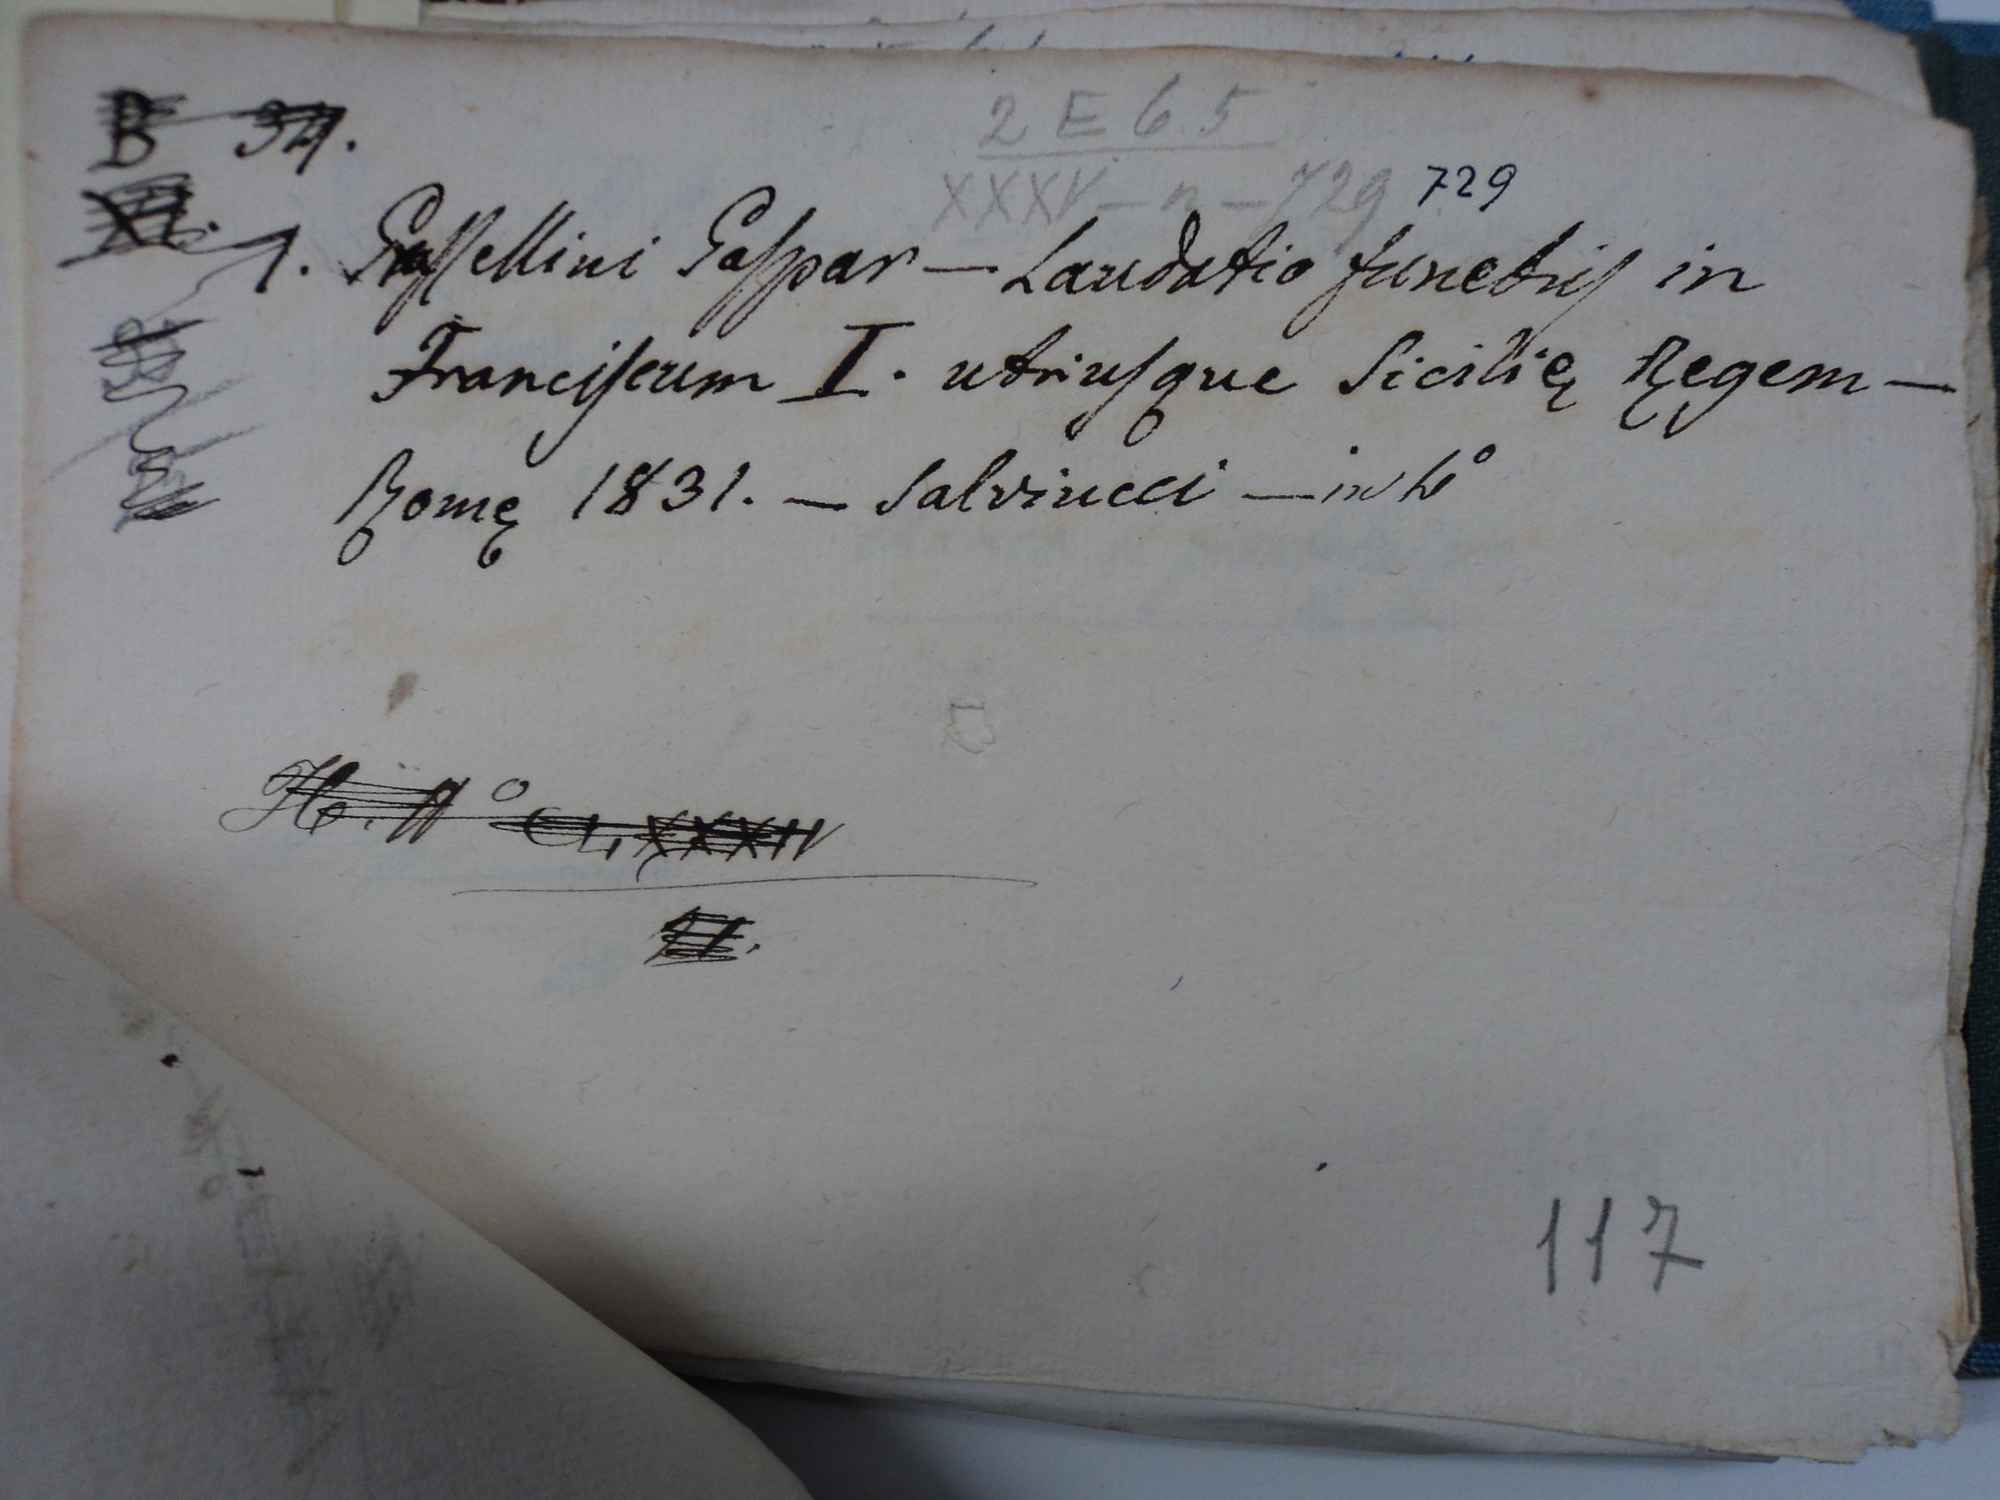 B 34.
2 E 65
XXXV - n - 729 729
1. Grassellini Gaspar — Laudatio funebris in
Franciscum I. utriusque Sicilię Regem —
Romę 1831. — Salviucci — in 4°
117